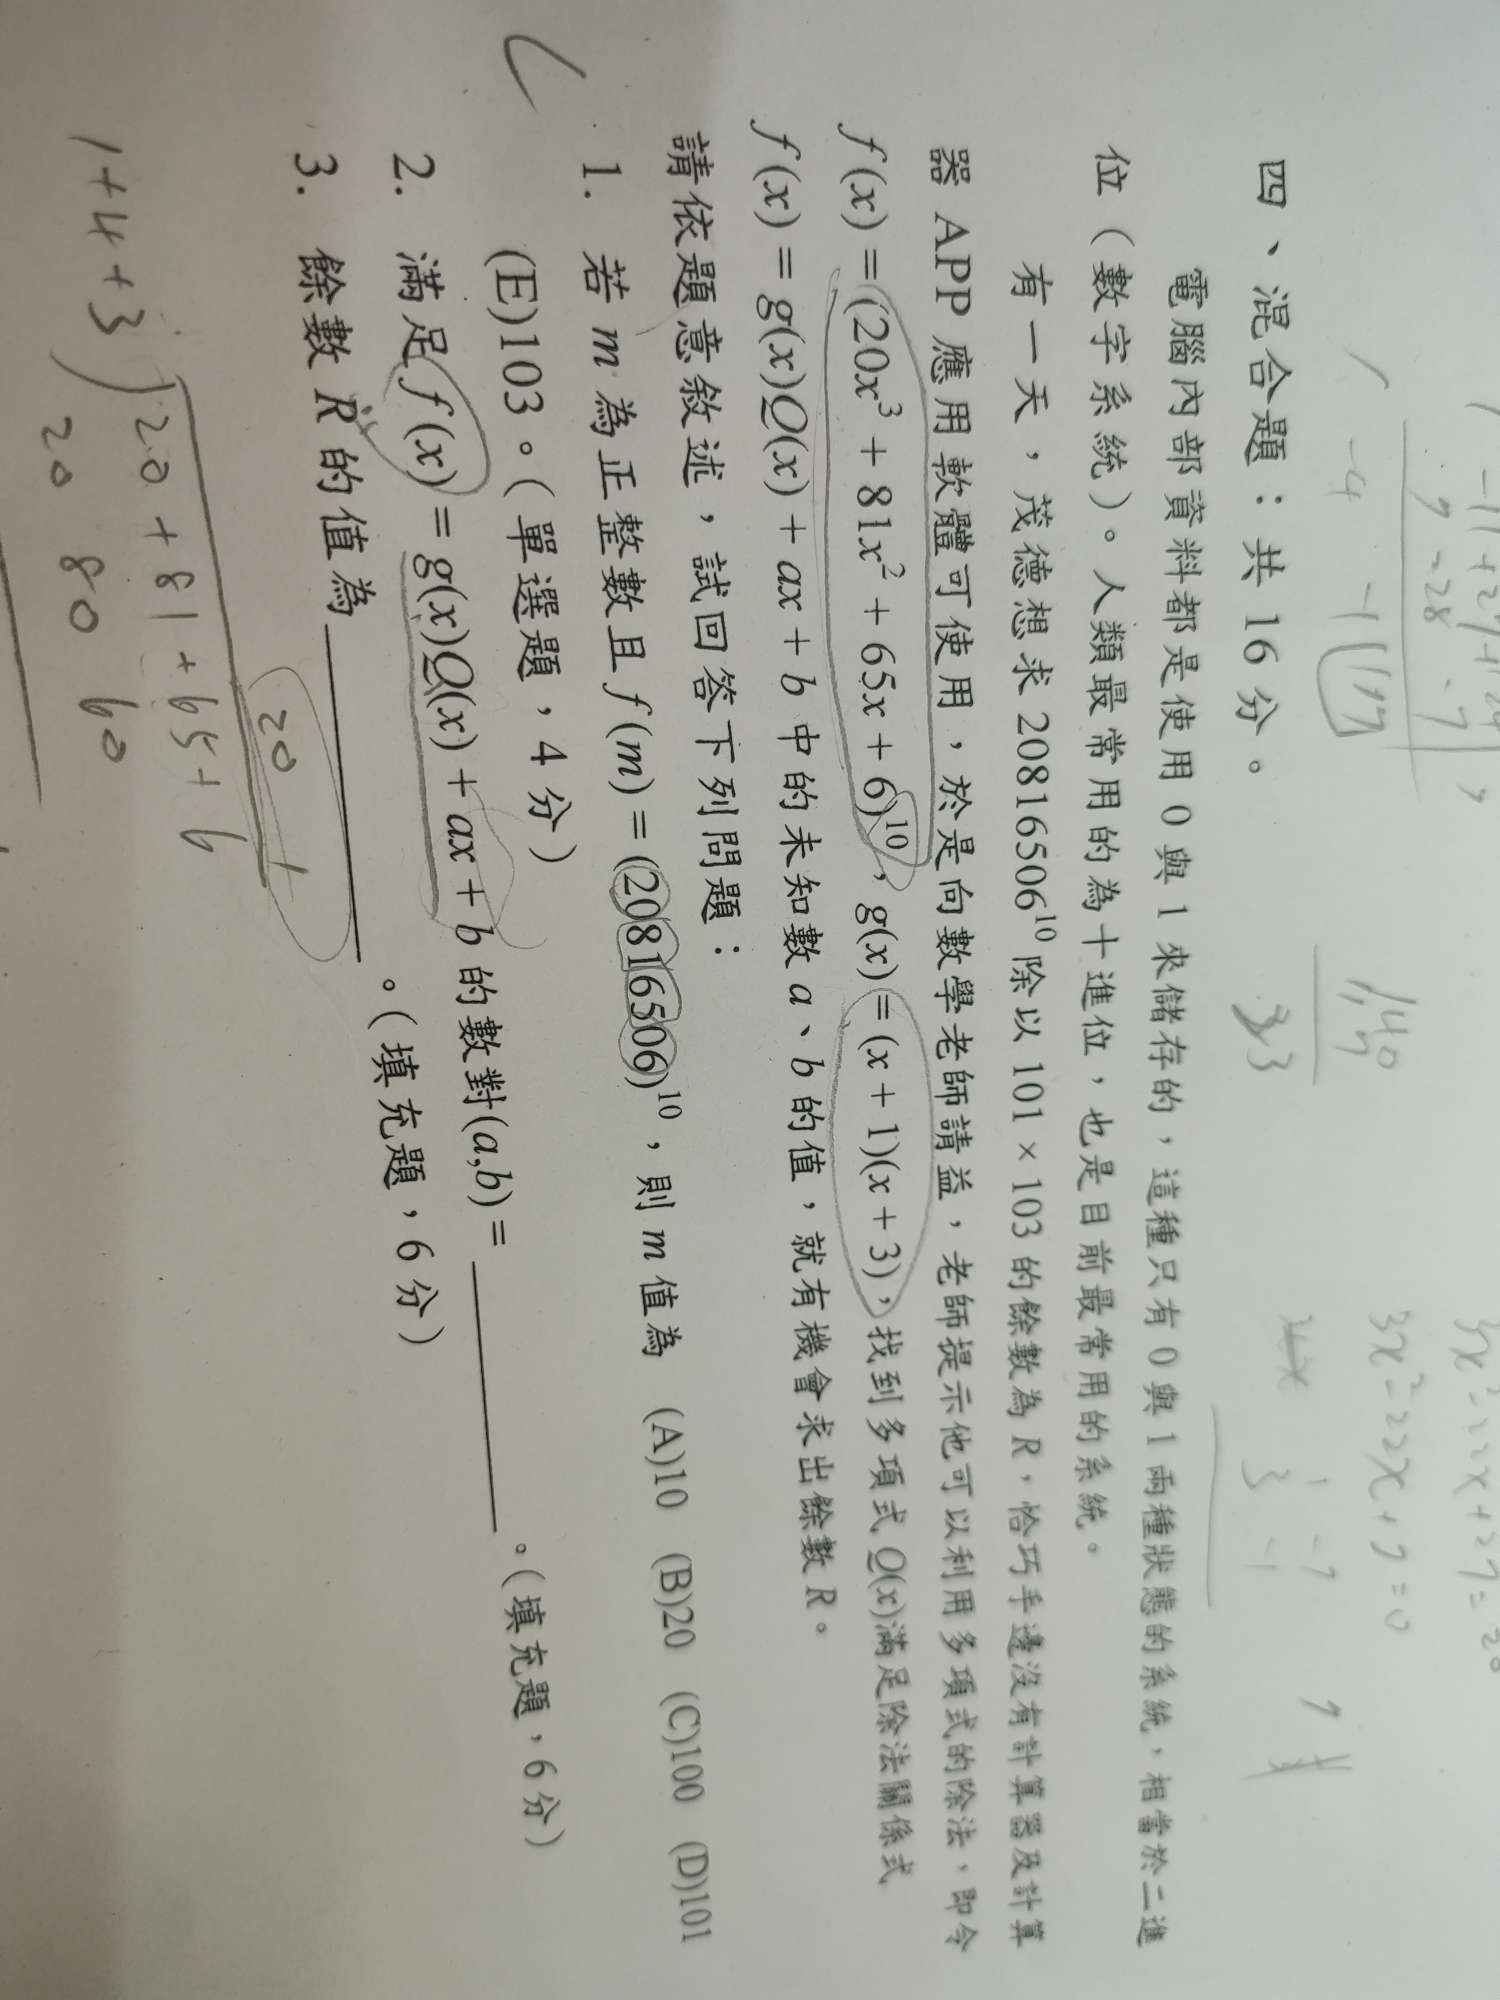 四、混合題：共 16 分。
電腦內部資料都是使用 0 與 1 來儲存的，這種只有 0 與 1 兩種狀態的系統，相當於二進
位（數字系統）。人類最常用的為十進位，也是目前最常用的系統。
有一天，茂德想求 20816506¹⁰ 除以 101 × 103 的餘數為 R，恰巧手邊沒有計算器及計算
器 APP 應用軟體可使用，於是向數學老師請益，老師提示他可以利用多項式的除法，即令
f(x) = (20x³ + 81x² + 65x + 6)¹⁰，g(x) = (x + 1)(x + 3)，找到多項式 Q(x)滿足除法關係式
f(x) = g(x)Q(x) + ax + b 中的未知數 a、b 的值，就有機會求出餘數 R。
請依題意敘述，試回答下列問題：
1. 若 m 為正整數且 f(m) = (20816506)¹⁰，則 m 值為 (A)10 (B)20 (C)100 (D)101
(E)103。（單選題，4 分）
2. 滿足 f(x) = g(x)Q(x) + ax + b 的數對(a,b) = ________。（填充題，6 分）
3. 餘數 R 的值為 ________。（填充題，6 分）
20
1+4+3 20+81+65+6
20 80 60
3x²-22x+7=0